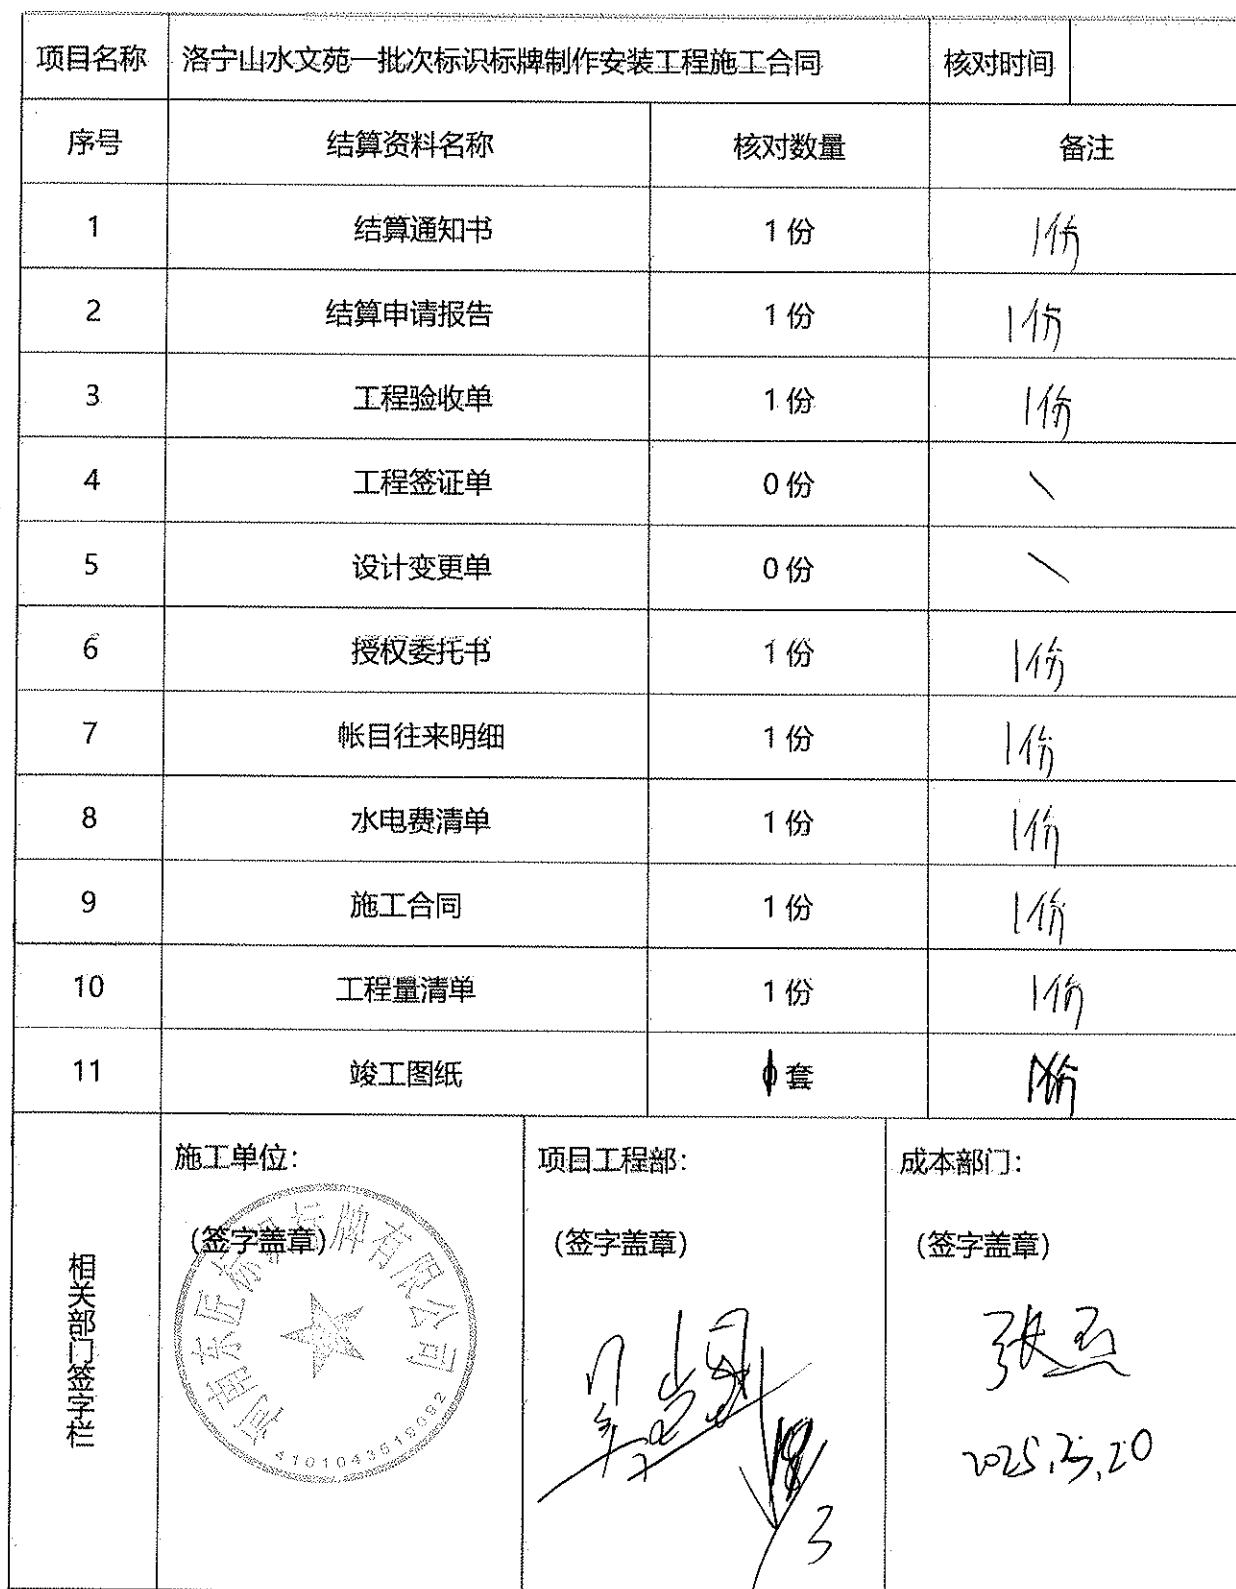 项目名称 洛宁山水文苑一批次标识标牌制作安装工程施工合同 核对时间
序号 结算资料名称 核对数量 备注
1 结算通知书 1份 1份
2 结算申请报告 1份 1份
3 工程验收单 1份 1份
4 工程签证单 0份 \
5 设计变更单 0份 \
6 授权委托书 1份 1份
7 帐目往来明细 1份 1份
8 水电费清单 1份 1份
9 施工合同 1份 1份
10 工程量清单 1份 1份
11 竣工图纸 套
相关部门签字栏
施工单位：
(签字盖章)
河南东匠标识标牌有限公司
项目工程部：
(签字盖章)
成本部门：
(签字盖章)